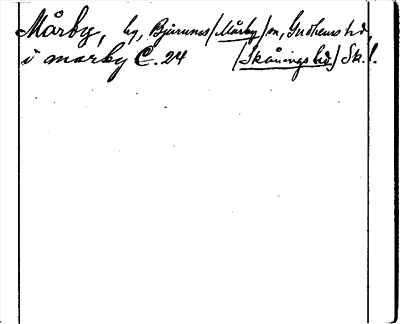 Mårby, by, Bjurums (Mårby) sn, Gudhems hd,
i marby C. 24 (Skånings hd.) Sk. l.